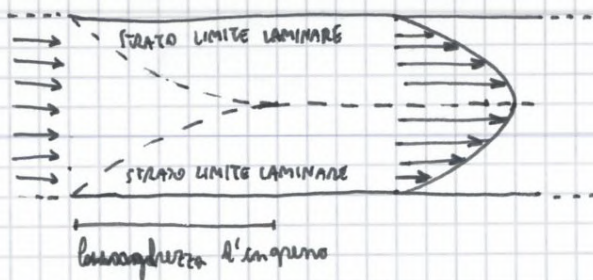 STRATO LIMITE LAMINARE
STRATO LIMITE LAMINARE
lunghezza d'ingresso